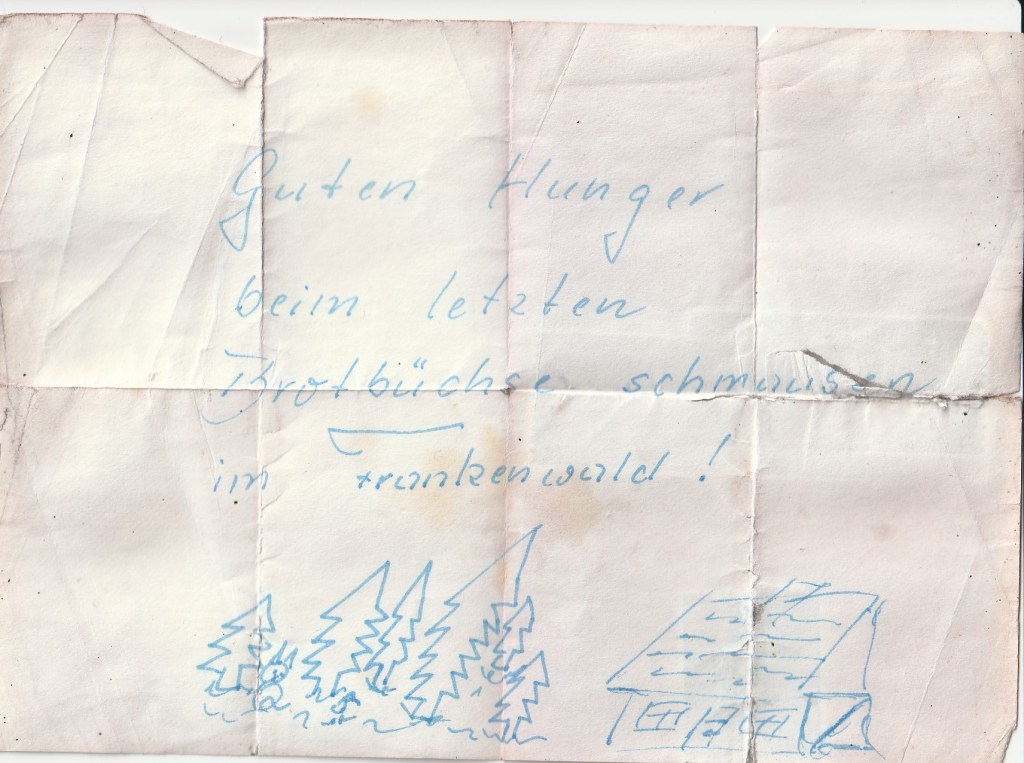 Guten Hunger
beim letzten
Brotbüchse schmausen
im Frankenwald!